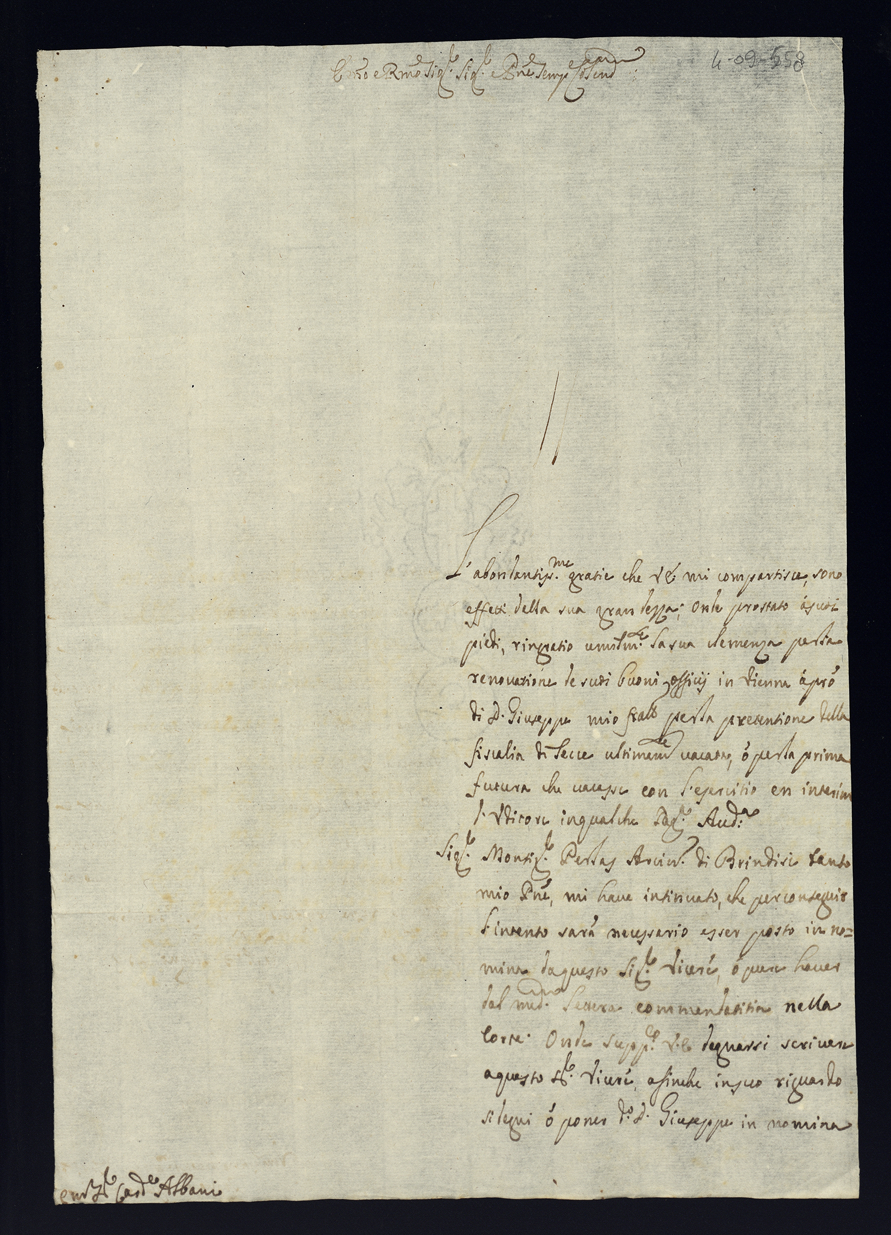 Em̃o e Rmõ Sigr. Sigr. e Pne semp Colend
4-09-558
L'abondantissme. gratie che VE mi compartisce, sono
effetti della sua grandezza; Onde prostato á suoi
piedi, ringratio umilmte. la sua clemenza per la
renovatione de suoi buoni officij in Vienna á pró
di D. Giuseppe mio fratello per la pretentione della
fiscalia di Lecce ultimamte vacata, ó per la prima
futura che vacasse con l'esercitio en interim
d'Uditore in qualche Aud.
Sigr. Monsigr. Arciv. di Brindisi tanto
mio Pne, mi have intinuato, che per conseguir
l'intento sará necessario esser posto in no=
mina da questo Sigr. Viceré, ó pure haver
dal med. lettera commendatitia nella
Corte. Onde supp. V.E. degnarsi scrivere
a questo Sigr. Viceré, afinche in suo riguardo
si degni ó poner do. D. Giuseppe in nomina
Em. Sr. Cardle Albani